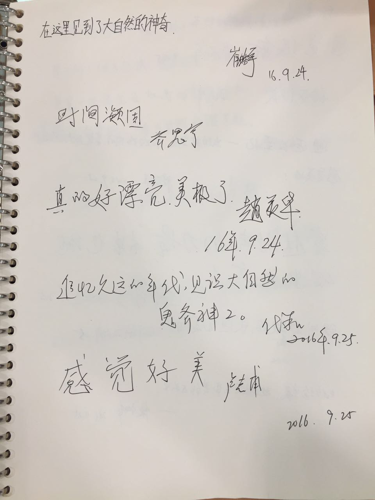 在这里见到了大自然的神奇.
16.9.24.
时间凝固
乔思宁
真的好漂亮.美极了.
16年.9.24.
追忆久远的年代,见识大自然的
鬼斧神工。
2016年.9.25.
感觉好美
2016.9.25